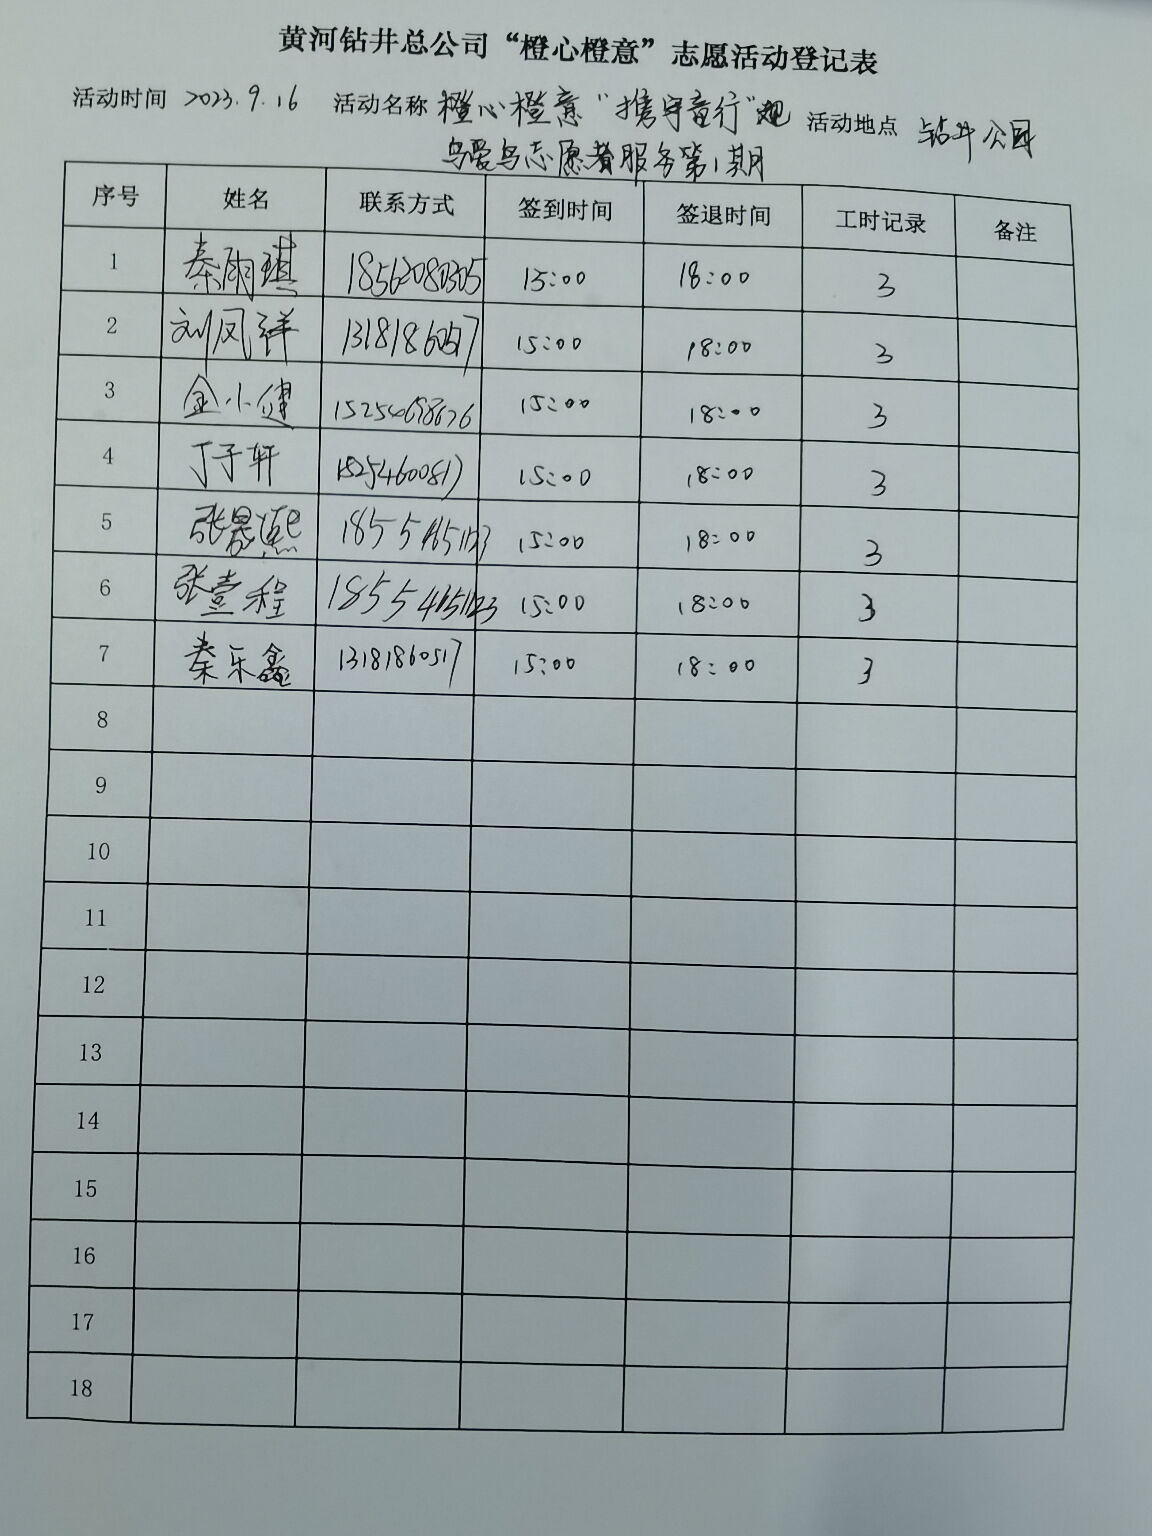 黄河钻井总公司“橙心橙意”志愿活动登记表
活动时间 2023.9.16 活动名称 橙心橙意“携宇童行”观 活动地点 钻井公园
鸟爱鸟志愿者服务第1期
序号 姓名 联系方式 签到时间 签退时间 工时记录 备注
1 秦雨琪 18562080305 15:00 18:00 3
2 刘凤祥 13181860517 15:00 18:00 3
3 金小健 15:00 18:00 3
4 丁子轩 15254600817 15:00 18:00 3
5 张晨熙 15:00 18:00 3
6 张壹程 15:00 18:00 3
7 秦乐鑫 13181860517 15:00 18:00 3
8
9
10
11
12
13
14
15
16
17
18